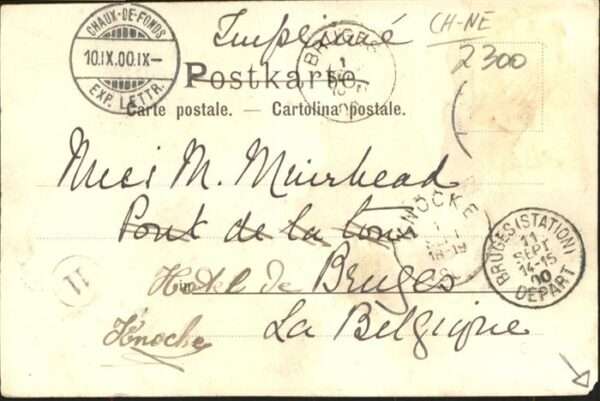 Imprimé
CH-NE
2300
CHAUX-DE-FONDS
10.IX.00.IX-
EXP. LETTR.
BRUGES
1
Postkarte.
Carte postale. — Cartolina postale.
Miss M. Muirhead
Pont de la tour
KNOCKE
18-19
BRUGES (STATION)
11
SEPT
14-15
00
DEPART
Hotel de Bruges
11
Knocke
La Belgique